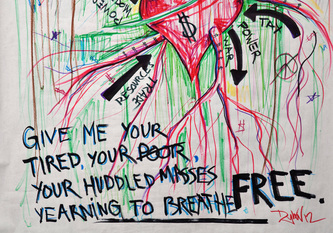 $
TAX
POWER
WAR
RESOURCE
TRADE
GIVE ME YOUR
TIRED, YOUR POOR,
YOUR HUDDLED MASSES
YEARNING TO BREATHE FREE.